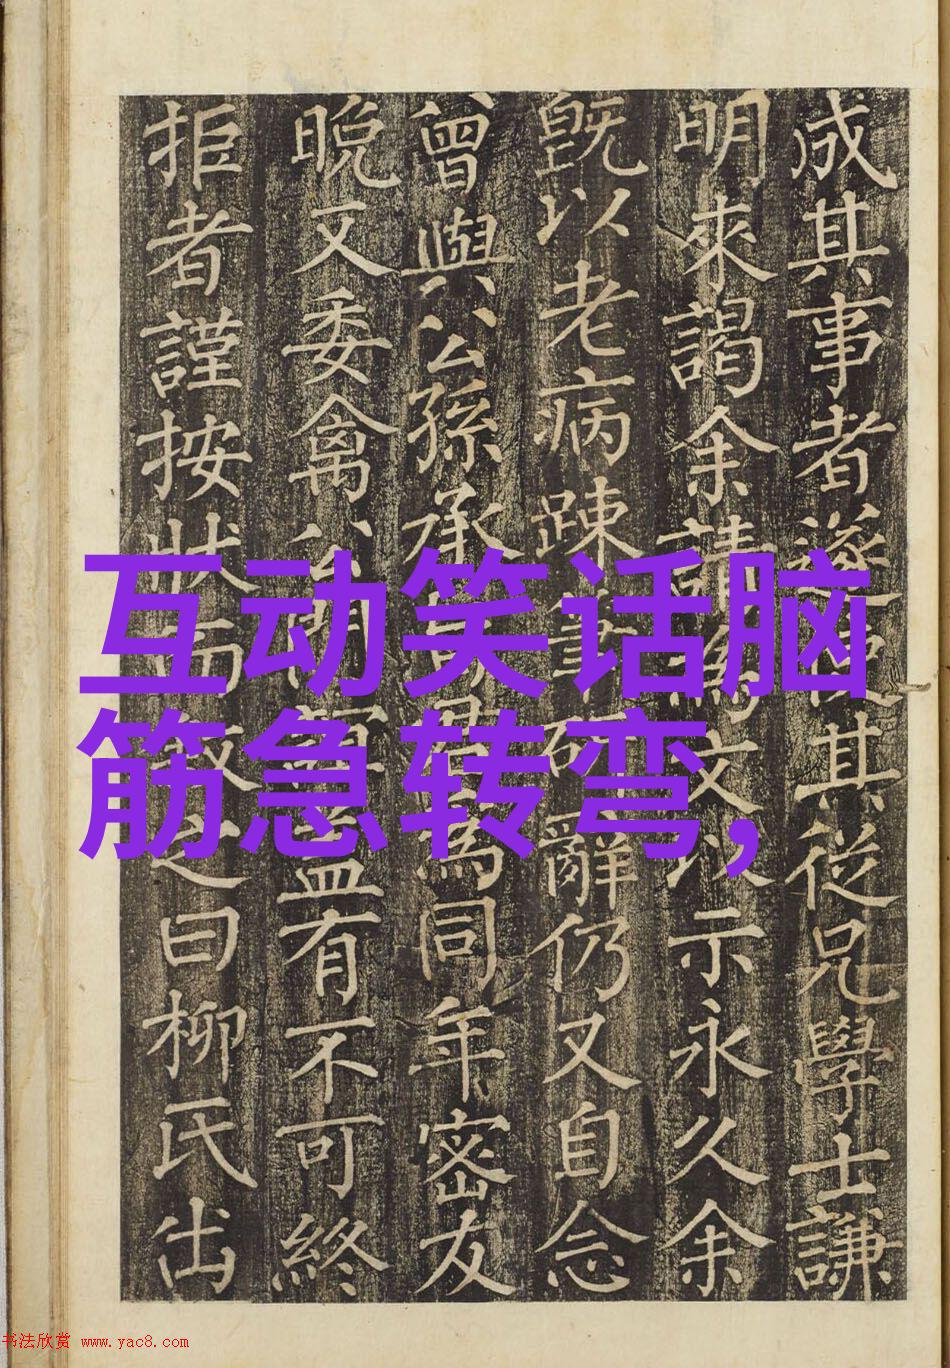 成其事者遂其從兄學士謙
明來謁余請為文以示永久余
旣以老病踈筆硯辭仍又自念
曾與公孫承爲同年密友
晩又委禽公有不可終
拒者謹按狀而敘之曰柳氏出
互动笑话脑
筋急转弯，
书法欣赏 www.yac8.com